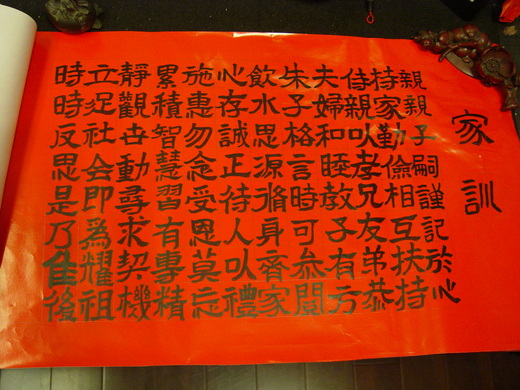 家訓
親親子嗣謹記於心
持家勤儉相互扶持
侍親以孝兄友弟恭
夫婦和睦教子有方
朱子格言時可参閱
飲水思源脩身齊家
心存誠正待人以禮
施惠勿念受恩莫忘
累積智慧習有專精
靜觀世動尋求契機
立足社会即為耀祖
時時反思是乃佳後